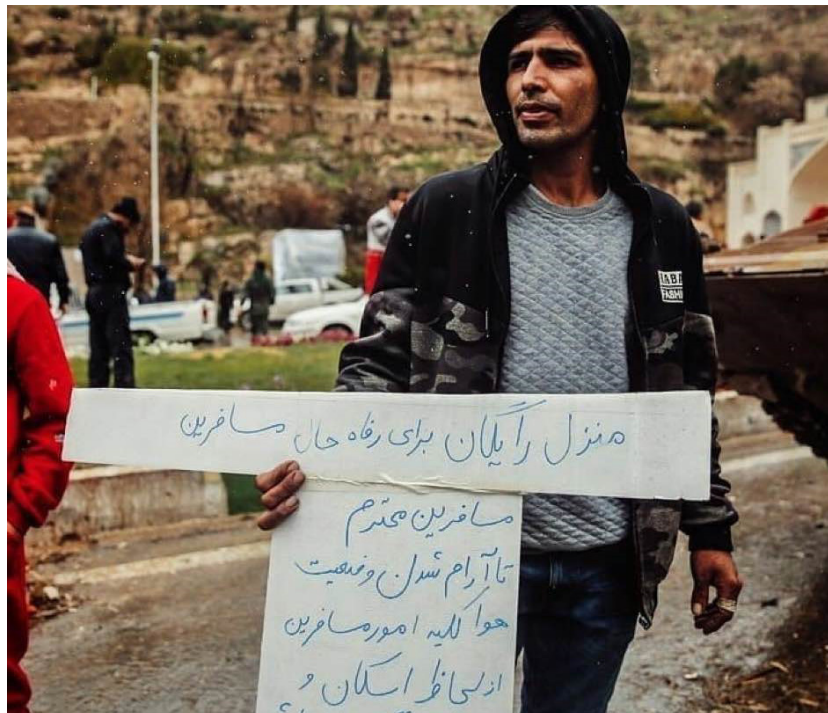 منزل رایگان برای رفاه حال مسافرین
مسافرین محترم
تا آرام شدن وضعیت
هوا کلیه امور مسافرین
از لحاظ اسکان و
FASHI